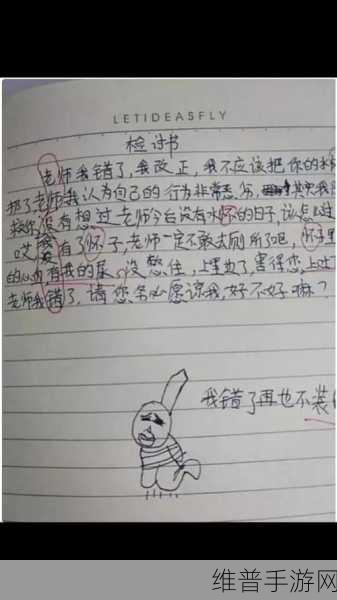 LETIDEASFLY
检讨书
老师我错了,我改正,我不应该把你的水
把了老师我认为自己的行为非常恶劣,其实我
没有想过老师今后没有水杯的日子,该怎么过
哎 有了杯子,老师一定不敢去厕所了吧,杯子里
的心血,有我的尿,没憋住,上里边了,害得您,上
老师我错了,请您务必原谅我,好不好嘛?
我错了再也不装
维普手游网